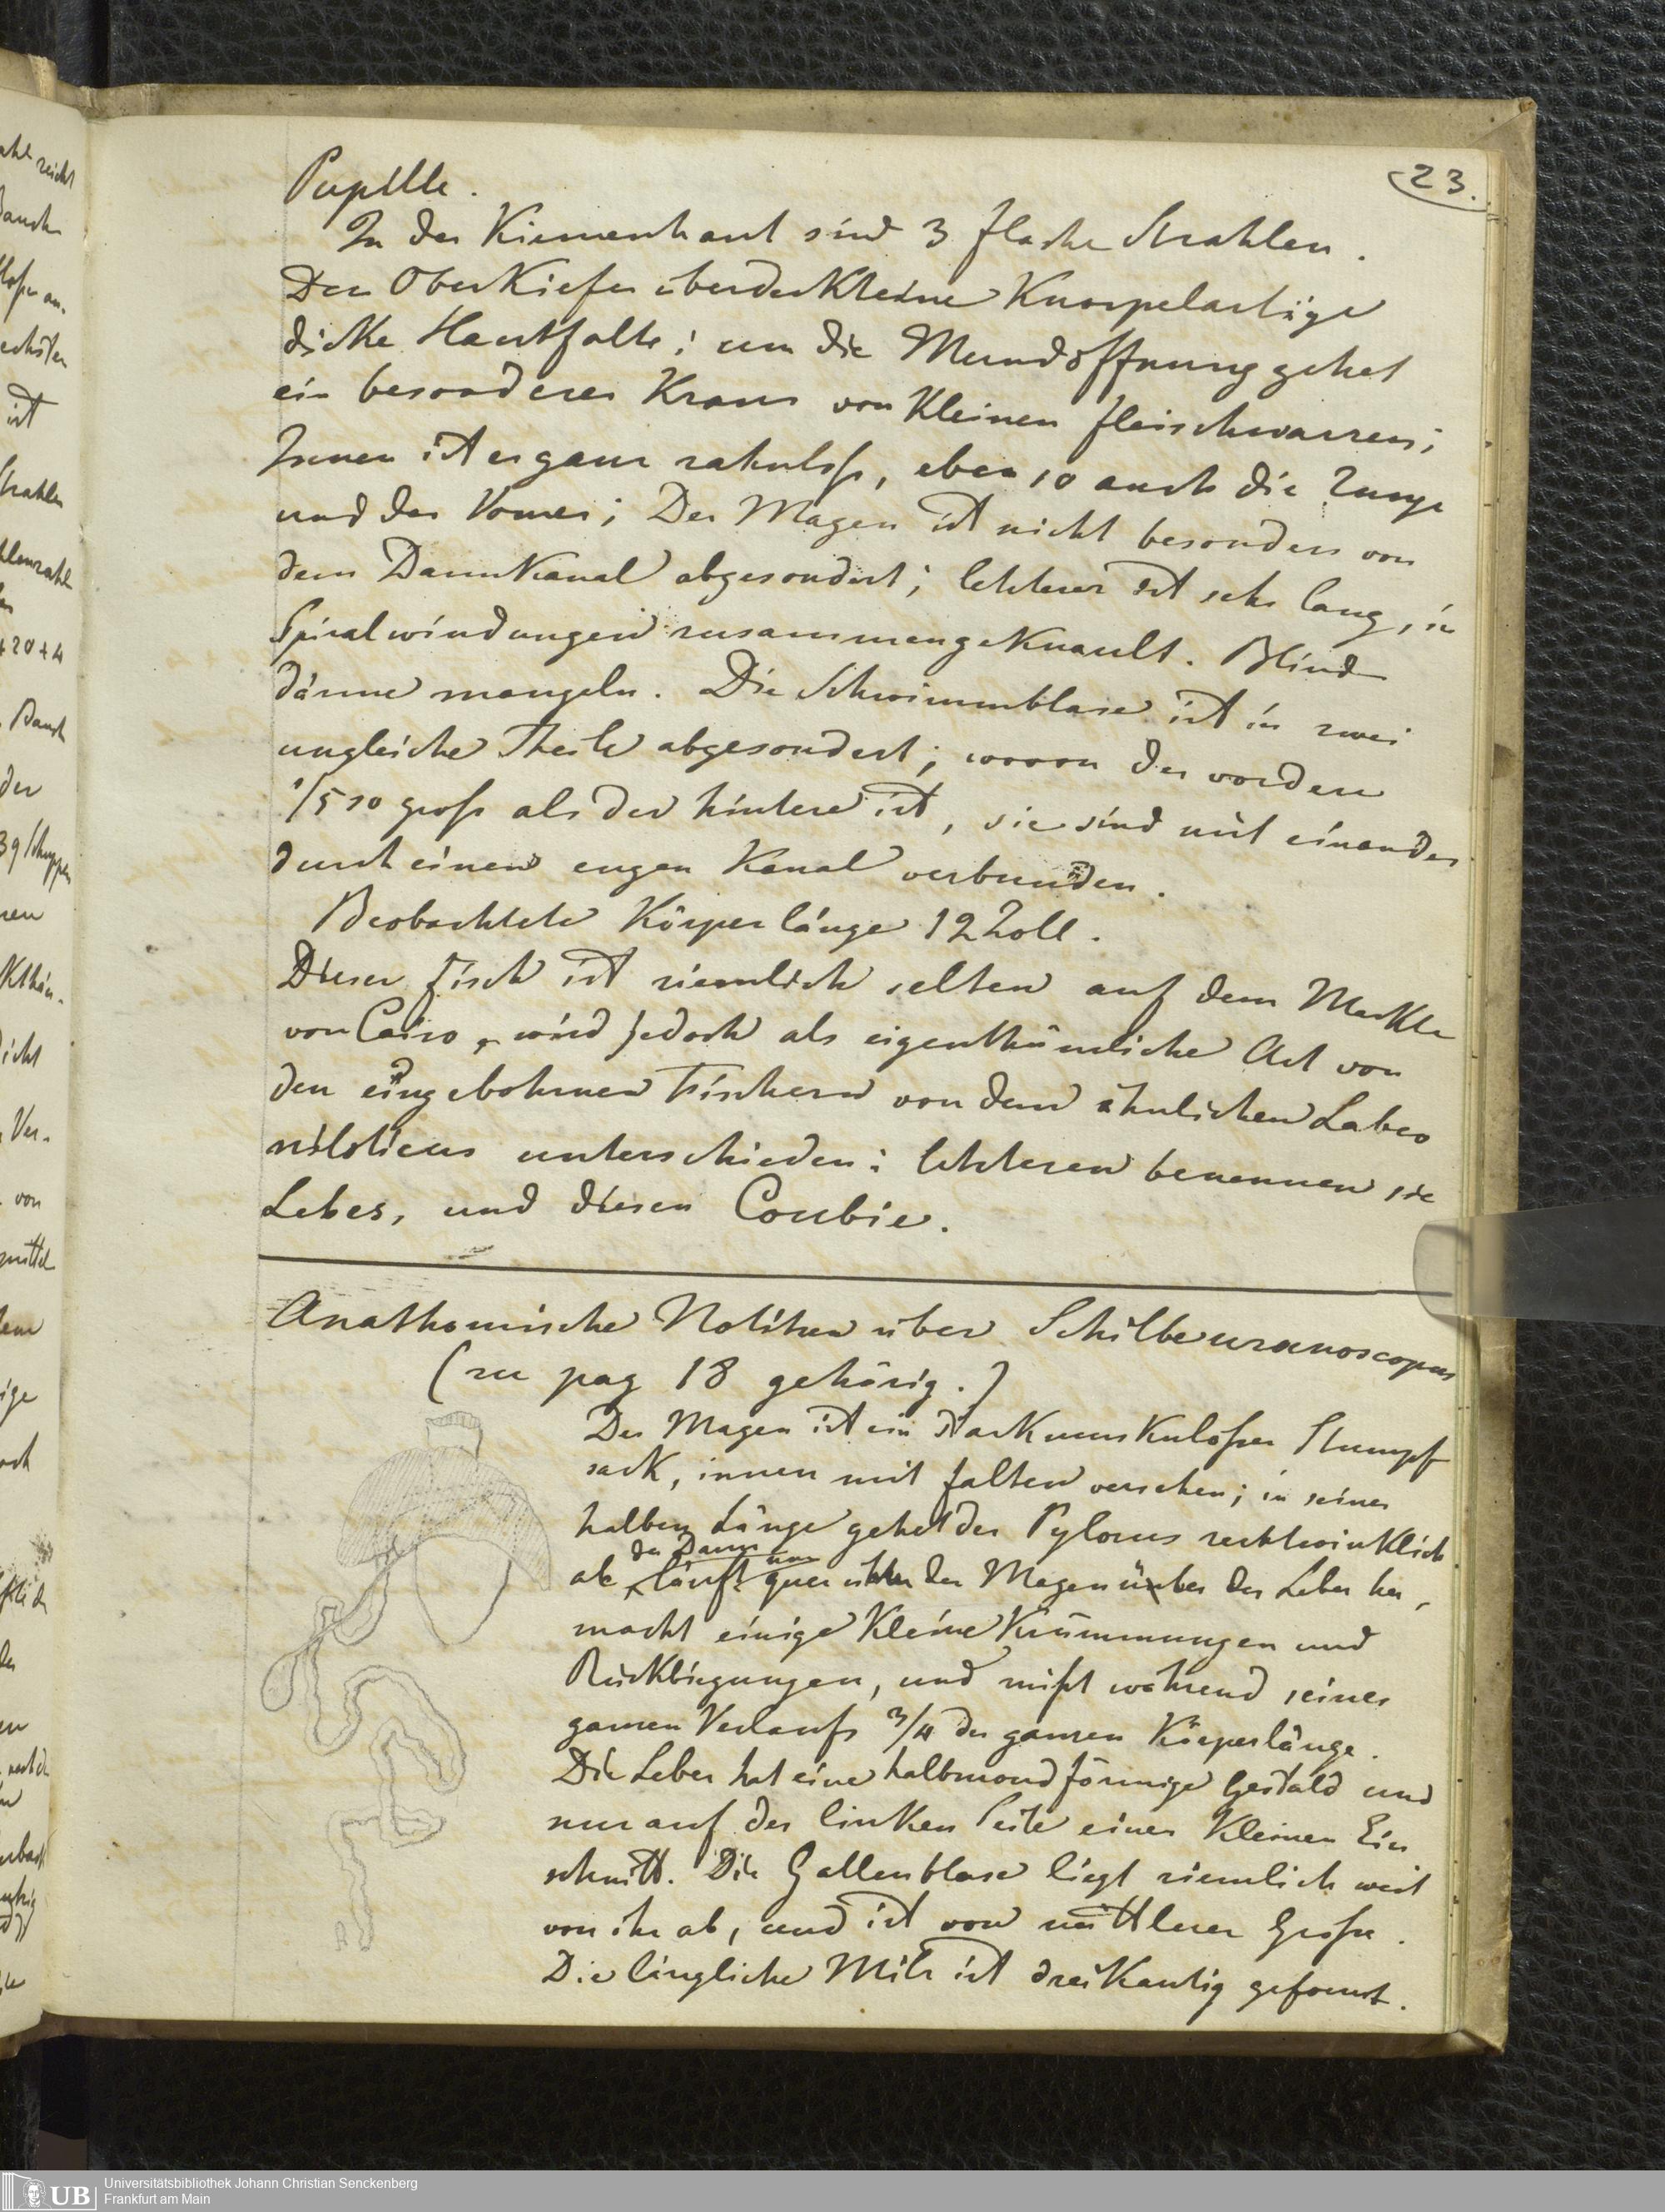 23.
Pupille.
In der Kiemenhaut sind 3 flache Strahlen.
Den Oberkiefer überdeckt eine Knorpelartige
dicke Hautfalte; um die Mundöffnung gehet
ein besonderer Kranz von kleinen fleischwarzen;
Innen ist er ganz zahnloß, eben so auch die Zunge
und der Vomer; Der Magen ist nicht besonders von
dem Darmkanal abgesondert; letzterer ist sehr lang, in
Spiralwindungen zusammengeknault. Blind
därme mangeln. Die Schwimmblase ist in zwei
ungleiche Theile abgesondert; wovon der vordere
1/5 so groß als der hintere ist, sie sind mit einander
durch einen engen Kanal verbunden.
Beobachtete Körperlänge 12 Zoll.
Dieser Fisch ist ziemlich selten auf dem Markte
von Cairo, wird jedoch als eigenthümliche Art von
den eingebohrnen Fischern von dem ähnlichen Labeo
niloticus unterschieden: letzteren benennen sie
Lebes, und diesen Coubie.
Anathomische Notitzen über Schilbe uranoscopus
(zu pag 18 gehörig.)
Der Magen ist ein stark muskuloser Stumpf
sack, innen mit falten versehen; in seiner
halben Länge gehet der Pylorus rechtwinklich
ab der Darm läuft quer über den Magen unter der Leber her,
macht einige kleine Krümmungen und
Rückbiegungen, und mißt während seines
ganzen Verlaufs 3/4 der ganzen Körperlänge.
Die Leber hat eine halbmondförmige Gestald und
nur auf der linken Seite einen kleinen Ein
schnitt. Die Gallenblase liegt ziemlich weit
von ihr ab, und ist von mittlerer Große.
Die längliche Milz ist dreikantig geformt.
UB Universitätsbibliothek Johann Christian Senckenberg
Frankfurt am Main